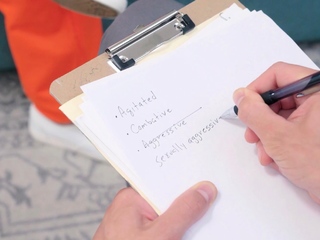 • Agitated
• Combative
• Aggressive
sexually aggressive